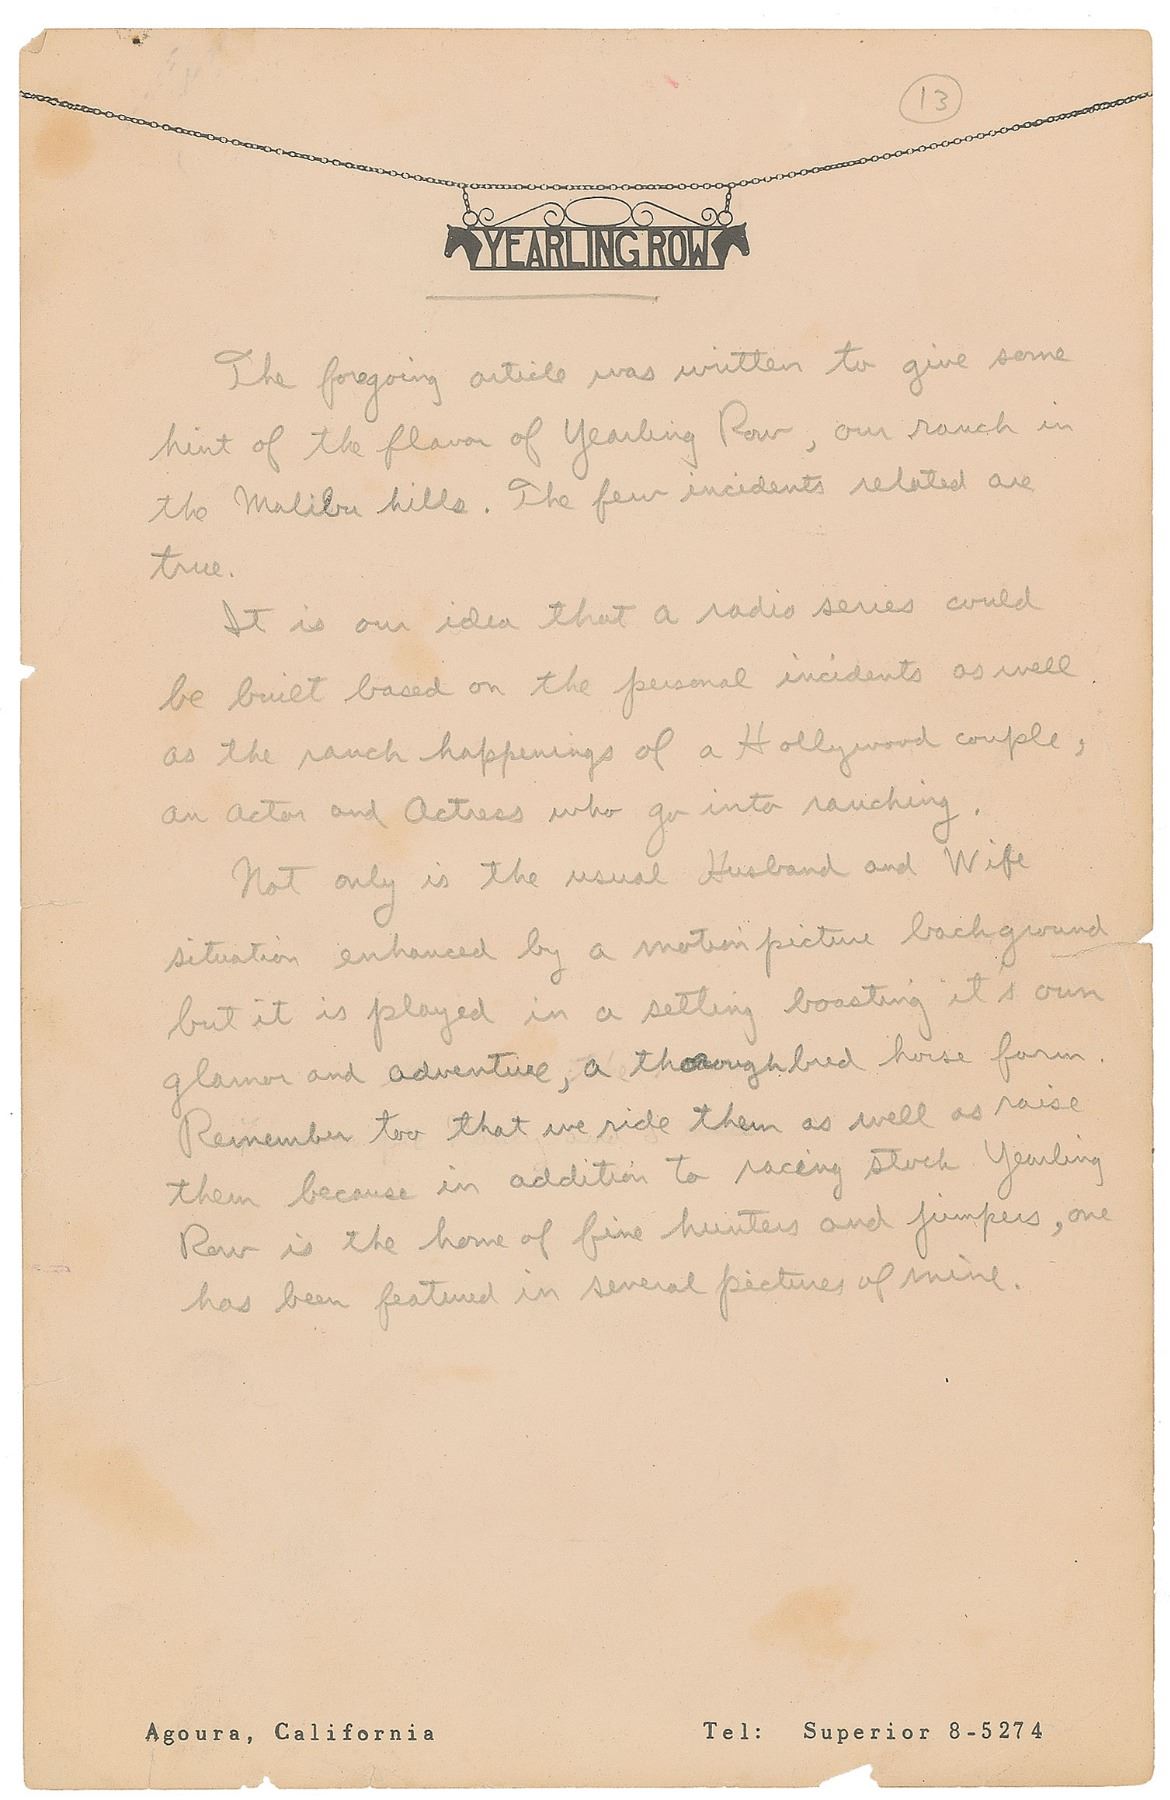 13
YEARLING ROW
The foregoing article was written to give some
hint of the flavor of Yearling Row, our ranch in
the Malibu hills. The few incidents related are
true.
It is our idea that a radio series could
be built based on the personal incidents as well
as the ranch happenings of a Hollywood couple,
an actor and Actress who go into ranching.
Not only is the usual Husband and Wife
situation enhanced by a motion picture background
but it is played in a setting boasting it's own
glamor and adventure, a thoroughbred horse farm.
Remember too that we ride them as well as raise
them because in addition to racing stock Yearling
Row is the home of fine hunters and jumpers, one
has been featured in several pictures of mine.
Agoura, California Tel: Superior 8-5274